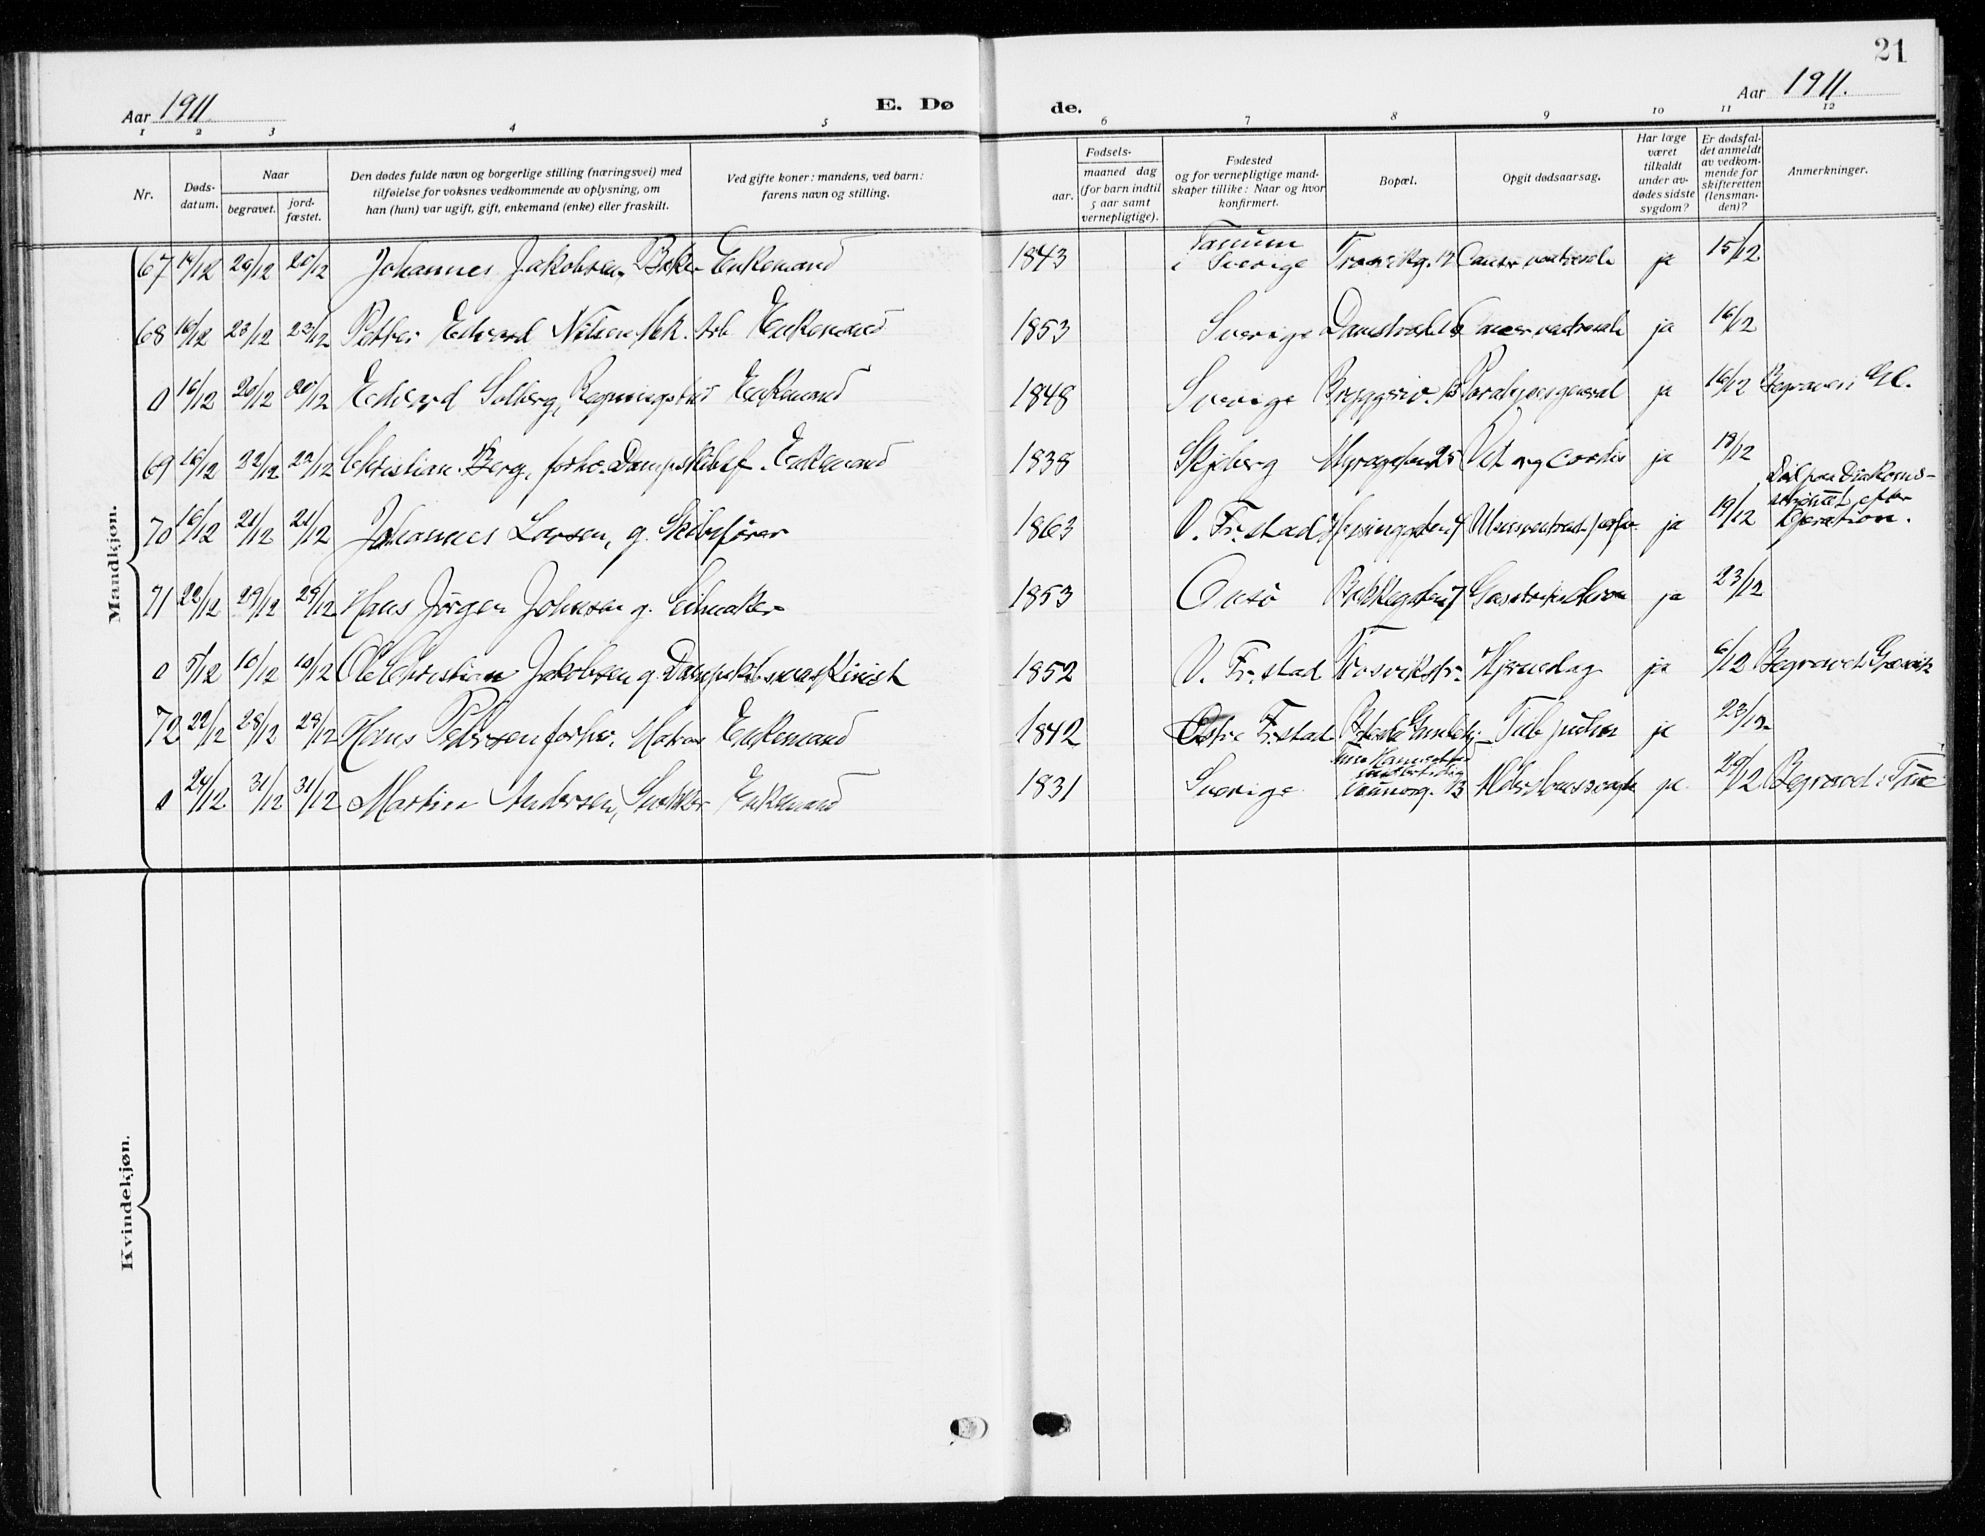 21
Aar 1911
E. Dø de.
Aar 1911.
1 2 3 4 5 6 7 8 9 10 11 12
Nr.
Døds-
datum.
Naar
begravet.
jord-
fæstet.
Den dødes fulde navn og borgerlige stilling (næringsvei) med
tilføielse for voksnes vedkommende av oplysning, om
han (hun) var ugift, gift, enkemand (enke) eller fraskilt.
Ved gifte koner: mandens, ved barn:
farens navn og stilling.
Fødsels-
aar.
maaned dag
(for barn indtil
5 aar samt
vernepligtige).
Fødested
og for vernepligtige mand-
skaper tillike: Naar og hvor
konfirmert.
Bopæl.
Opgit dødsaarsag.
Har læge
været
tilkaldt
under av-
dødes sidste
sygdom?
Er dødsfal-
det anmeldt
av vedkom-
mende for
skifteretten
(lensman-
den)?
Anmerkninger.
Mandkjøn.
67 14/12 20/12 20/12 Johannes Jakobsen, Baker Enkemand 1843 Tanum
i Sverige Cancer ventriculi ja 15/12
68 16/12 23/12 23/12 Petter Edvard Nilsen Enkemand 1853 Sverige Cancer ventriculi ja 16/12
0 16/12 20/12 20/12 Edvard Solberg, Enkemand 1848 Sverige ja 16/12 Begravet
69 16/12 22/12 22/12 Christian Berg, forhv. Dampskibsf. Enkemand 1838 Skjeberg Vit. org cordis ja 18/12
70 16/12 21/12 21/12 Johannes Larsen, g. Skibsfører 1863 V. Fr.stad ja 19/12 Død paa Diakonis-
efter
Operation.
71 22/12 29/12 29/12 Hans Jørgen Johnsen g. Seilmaker 1853 Onsø ja 23/12
0 5/12 10/12 10/12 Ole Christian Jakobsen g. Dampskibsmaskinist 1852 V. Fr.stad Hjerneslag ja 6/12 Begravet
72 22/12 28/12 28/12 Hans Petersen forhv. Matros Enkemand 1842 Østre Fr.stad Tub pulm ja 23/12
0 24/12 31/12 31/12 Martin Andersen, Snekker Enkemand 1831 Sverige ja 29/12 Begravet i Tune
Kvindekjøn.